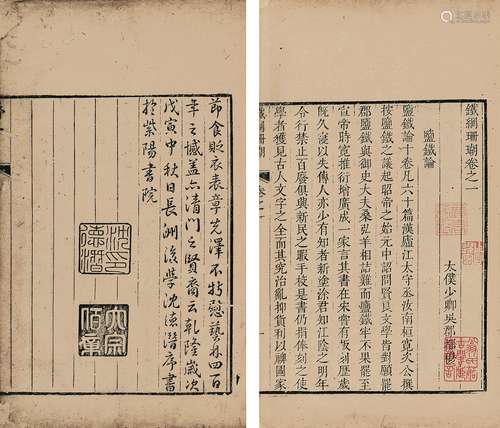 鐵網珊瑚卷之一
太僕少卿吳郡都穆
鹽鐵論
鹽鐵論十卷凡六十篇漢廬江太守丞汝南桓寬次公撰
按鹽鐵之議起昭帝之始元中詔問賢良文學皆對願罷
郡鹽鐵與御史大夫桑弘羊相詰難而鹽鐵卒不果罷至
宣帝時寬推衍增廣成一家言其書在宋嘗有板刻歷歲
既久寖以失傳人亦少有知者新塗涂君知江陰之明年
令行禁止百廢俱興新民之暇手校是書仍捐俸刻之使
學者獲見古人文字之全而其究治亂抑貨利以裨國家
節食貶衣表章先澤不特慰藝林四百
年之憾蓋亦清門之賢裔云乾隆歲次
戊寅中秋日長洲後學沈德潛序書
於紫陽書院
沈印德潛
大宗伯章